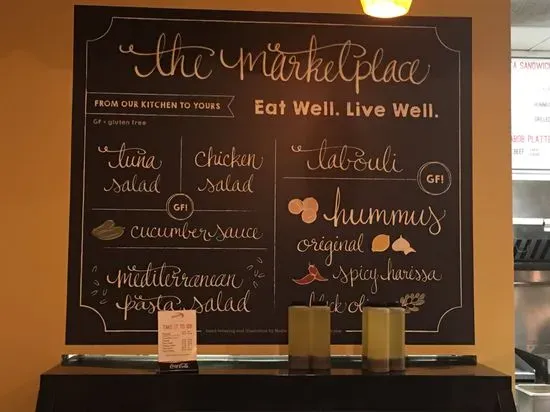 the Marketplace
FROM OUR KITCHEN TO YOURS
GF = gluten free
Eat Well. Live Well.
tuna salad
chicken salad
GF!
cucumber sauce
mediterranean
pasta salad
tabouli
GF!
hummus
original
spicy harissa
black olive
hand-lettering and illustration by
TAKE IT TO GO!
Coca-Cola
A SANDWICH
KABOB PLATTE
BEEF